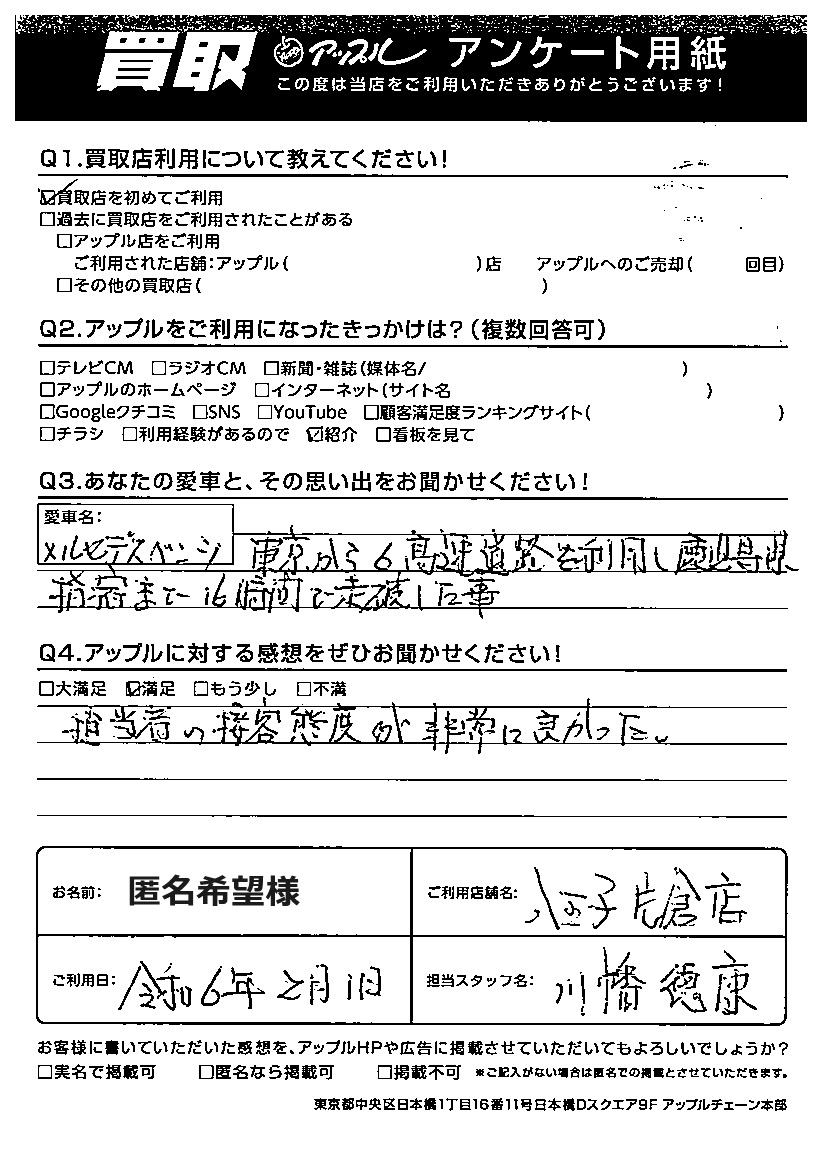 買取 アップル アンケート用紙
この度は当店をご利用いただきありがとうございます!
Q1.買取店利用について教えてください!
☑買取店を初めてご利用
□過去に買取店をご利用されたことがある
□アップル店をご利用
ご利用された店舗:アップル( )店 アップルへのご売却( 回目)
□その他の買取店( )
Q2.アップルをご利用になったきっかけは?(複数回答可)
□テレビCM □ラジオCM □新聞・雑誌(媒体名/ )
□アップルのホームページ □インターネット(サイト名 )
□Googleクチコミ □SNS □YouTube □顧客満足度ランキングサイト( )
□チラシ □利用経験があるので ☑紹介 □看板を見て
Q3.あなたの愛車と、その思い出をお聞かせください!
愛車名:
メルセデスベンツ 東京から 高速道路を利用し鹿児島県
指宿まで16時間で走破した車
Q4.アップルに対する感想をぜひお聞かせください!
□大満足 ☑満足 □もう少し □不満
担当者の接客態度が非常に良かった。
お名前: 匿名希望様 ご利用店舗名: 八王子片倉店
ご利用日: 令和6年2月11日 担当スタッフ名: 川幡徳康
お客様に書いていただいた感想を、アップルHPや広告に掲載させていただいてもよろしいでしょうか?
□実名で掲載可 □匿名なら掲載可 □掲載不可 ※ご記入がない場合は匿名での掲載とさせていただきます。
東京都中央区日本橋1丁目16番11号日本橋Dスクエア9F アップルチェーン本部